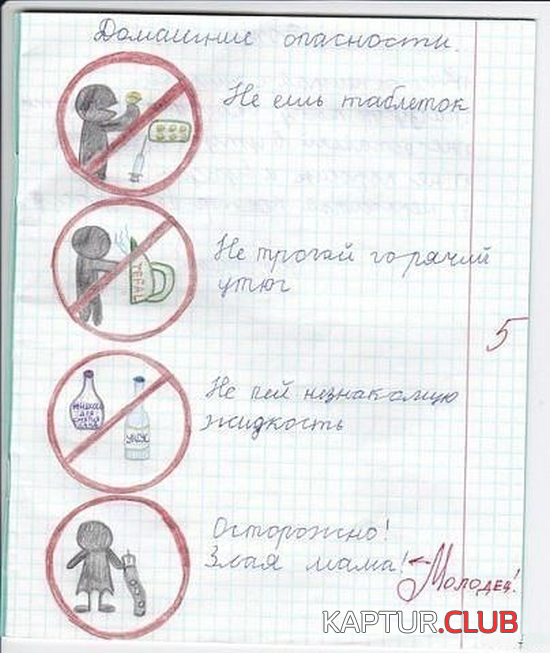 Домашние опасности.
Не ешь таблеток
Не трогай горячий
утюг
TEFAL
5
Не пей незнакомую
жидкость
УКСУС
Осторожно!
Злая мама!
Молодец!
KAPTUR.CLUB